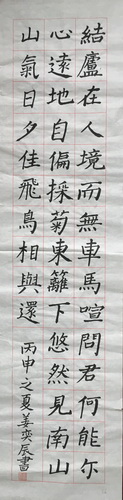 結廬在人境而無車馬喧問君何能尔
心遠地自偏採菊東籬下悠然見南山
山氣日夕佳飛鳥相與還丙申之夏姜奕辰書